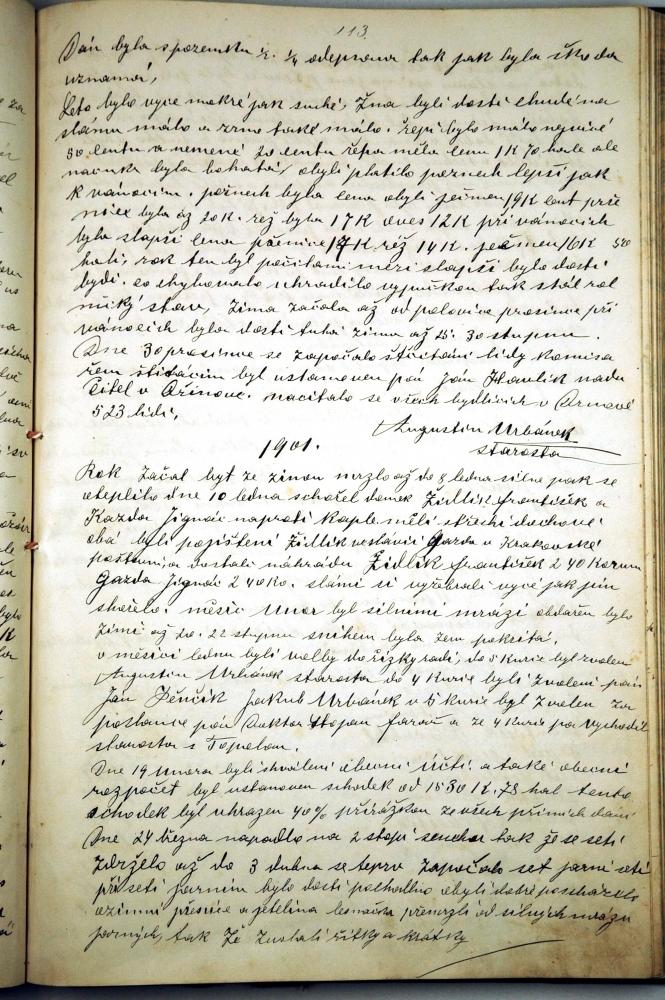 113.
Dáň byla s pozemku ½. ¼ odepsana tak jak byla škoda
uznamá,
Leto bylo vyce mokré jak suché, Žna byli dosti chudé na
slámu málo a zrna také málo. řepi bylo málo nejvicé
80 centu a nemené 20 centu řepa měla cenu 1K 70 hale ale
nacuka byla bohatá, obyli platilo pozneh lepší jak
K vánocim. požneh byla cena obyli ječmen 19K cent pše
nice byla až 20K. rež byla 17K oves 12K při vánocich
byla slapší cena pšenice 17K réž 14K. ječmen 16K 50
hali, rok ten byl počitami mezi slapší bylo dosti
bydi. co chybovalo uhradilo vypučkou tak stál rol
nický stav, Zima začala až od polovice prosince při
vánocich byla dosti tuhá zima až 15. 30 stupnu.
Dne 30 prosince se započalo sčitani lidy komisa
řem štitácim byl ustamoven pan Ján Havlik nadu
čitel v Ořinove. nacitalo se všech bydlicich v Arnově
523 lidi,
Augustin Urbánek
starosta
1901.
Rok začal byt ze zimou mrzlo až do 8 ledna silne pak se
oteplilo dne 10 ledna schořel domek Židlik František a
Kazda Jignác naproti kaple měli střechi dochové
obá byli pojišteni Židlik veslávii Gazda v Krakovské
poštovni, a dostali náhrádu Židlik František 240 Korun
Gazda Jignác 240 Ko. slámi si vyžebrali vyce jak jim
shořelo. měsic Unor byl silnimi mrázi obdařen bylo
Zimi až do. 22 stupnu snihem byla zem pokritá,
v měsici lednu byli volby do řižky radi, do 5 kurie byl zvolen
Augustin Urbánek starosta do 4 kurie byli zvoleni pan
Ján Jěnčik Jakub Urbánek v 5 kurie byl zvolen za
poslance pan Doktor Stojan farař a ze 4 kurie pa Vychodil
starosta s Topolan.
Dne 19 unora byli shváleni obecni účti. a také obecni
rozpočet byl ustanoven schodek od 1530 K. 78 hal tento
schodek byl uhrazen 40% přirážkou ze všech přimich dani
Dne 24 března napadlo na 2 stopi sencha tak že se seti
zdrželo až do 3 dubna se teprv započalo set jarni seti
při seti jarnim bylo dosti pochadlno obyli dobře posscházeli
ozimni pšenice a jetelina beznačka přemrzli od silnych mrazu
jarnych, tak že zustali řitky a krátky